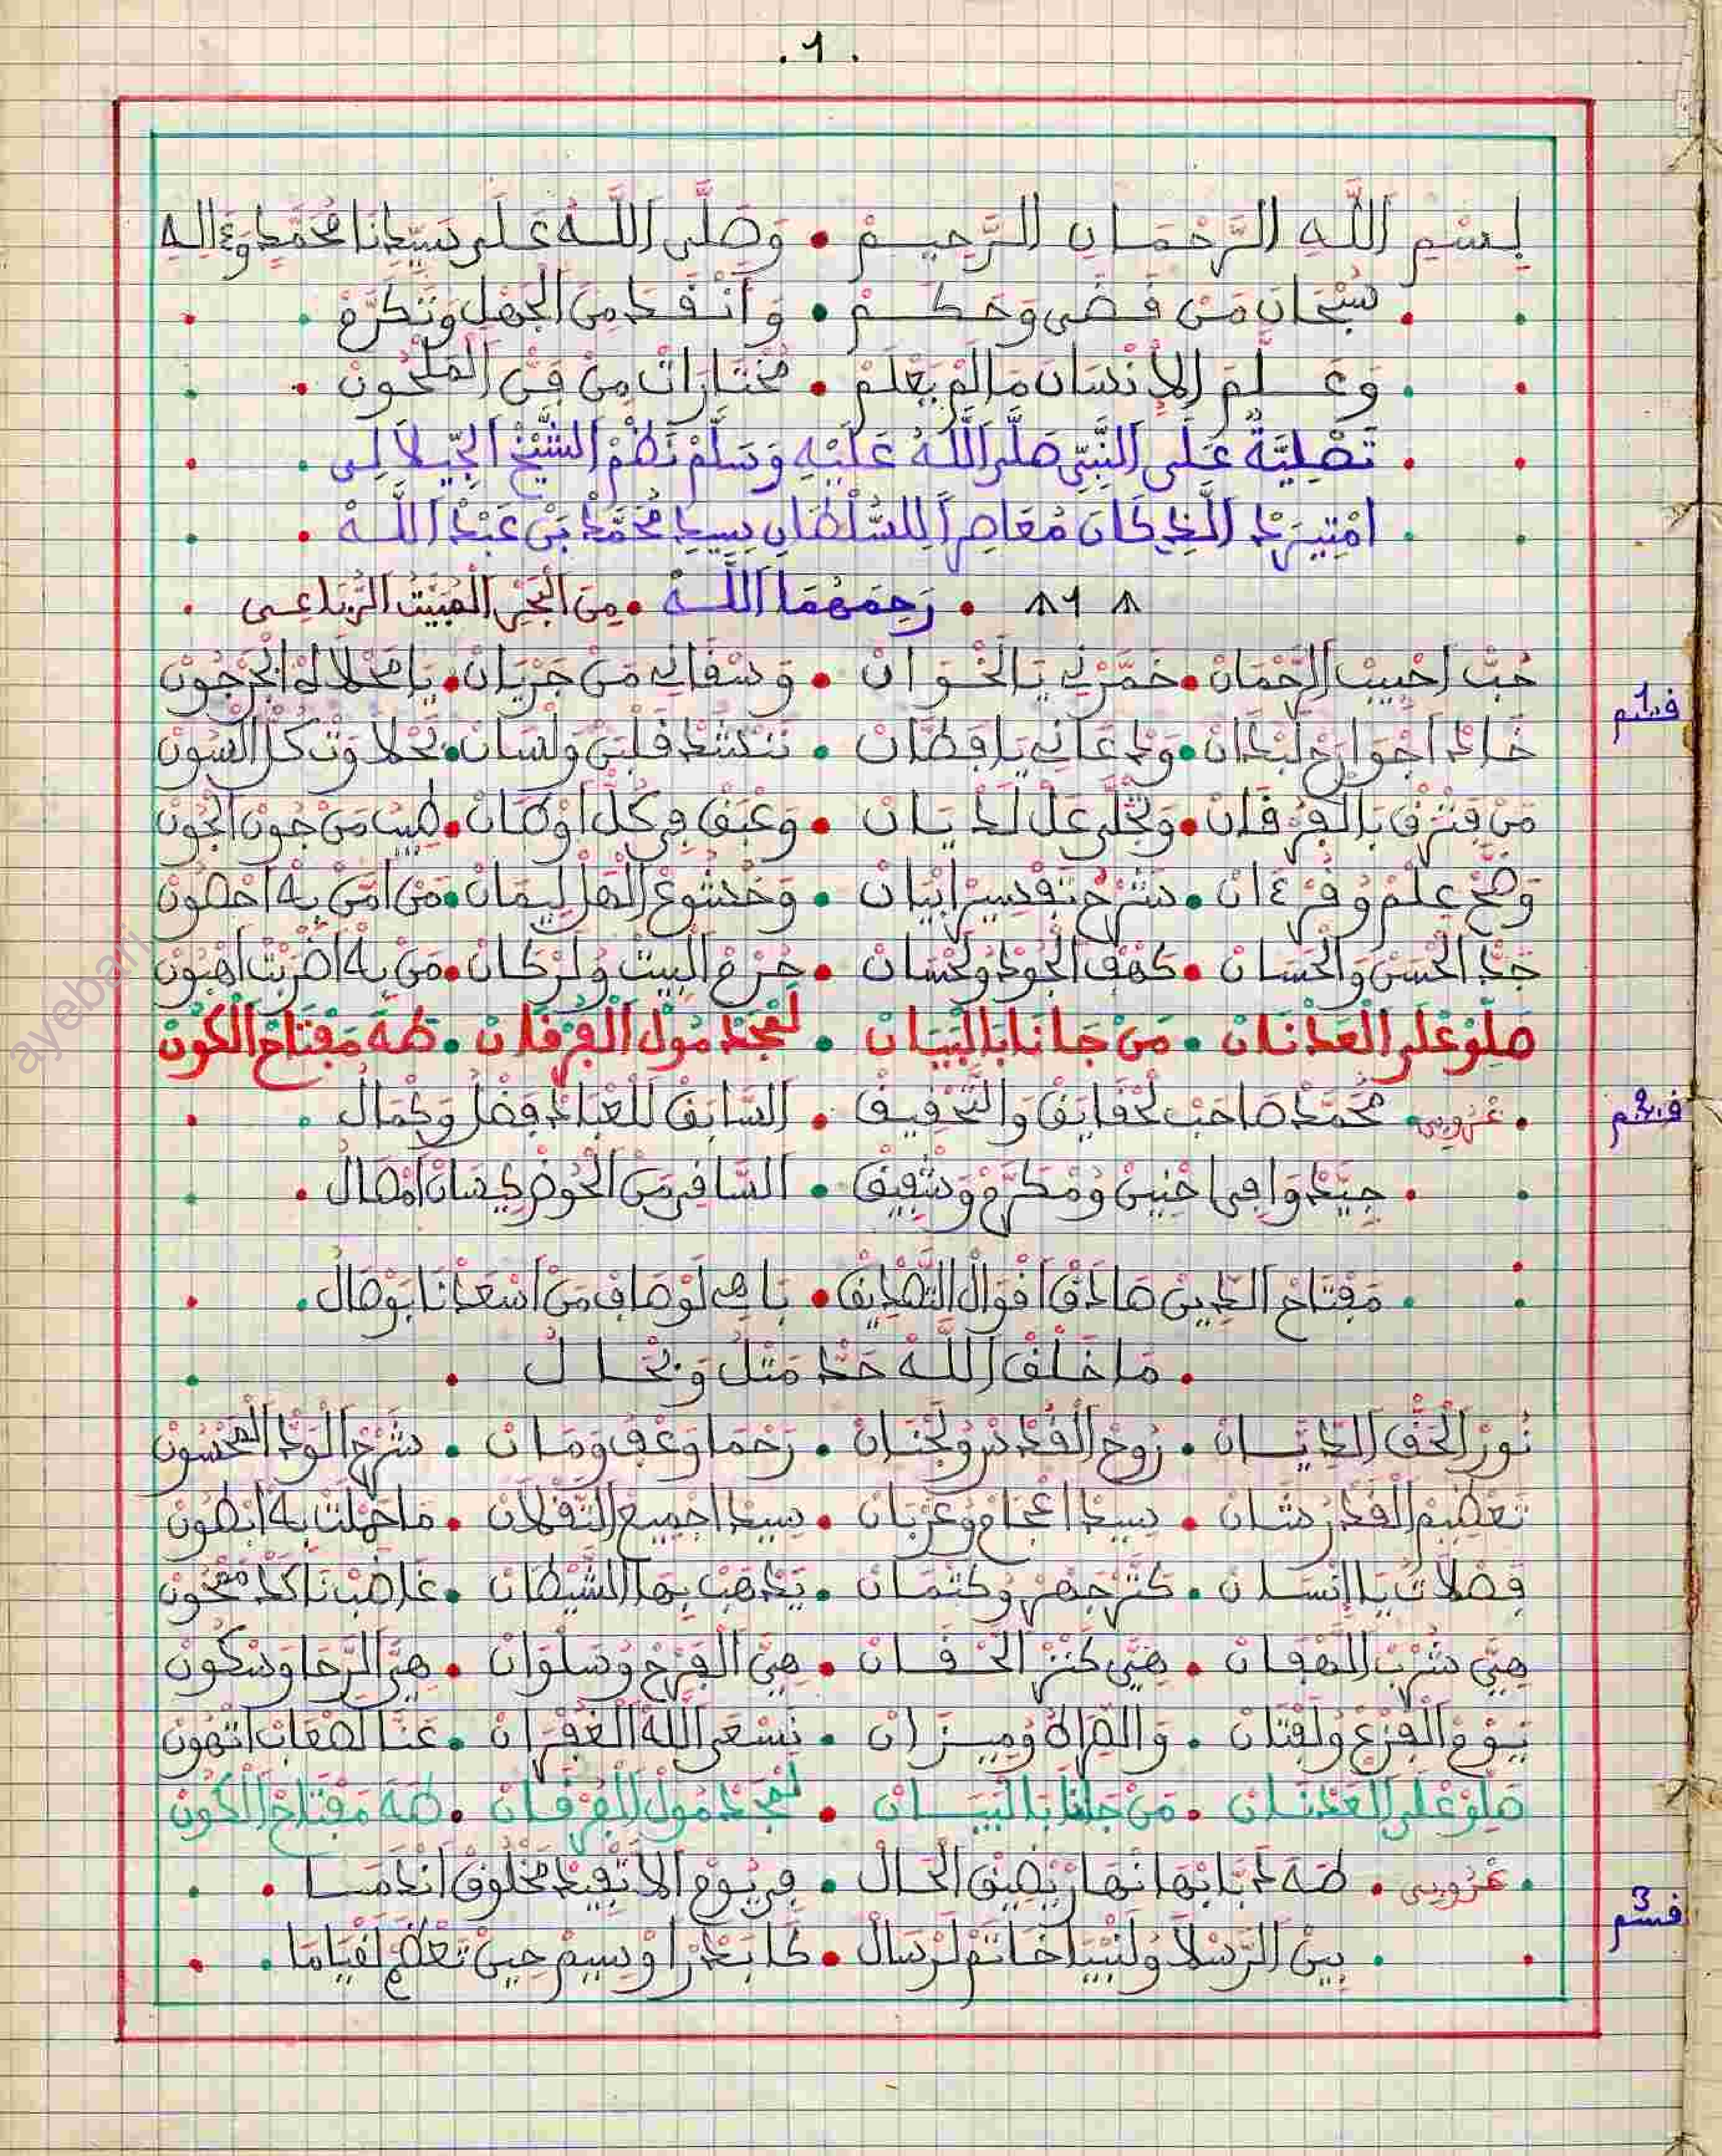 .1.
بِسْمِ اللَّهِ الرَّحْمَانِ الرَّحِيمْ • وَصَلَّى اللَّهُ عَلَى سَيِّدِنَا مُحَمَّدٍ وَءَالِهِ
سُبْحَانَ مَنْ قَضَى وَحَكَمْ • وَانْقَدْ مِنَ الْجَهْلِ وَتْكَرَّمْ
وَعَلَّمَ الْإِنْسَانَ مَا لَمْ يَعْلَمْ • مُخْتَارَاتْ مِنْ فَنّ الْمَلْحُونْ
تَصْلِيَّةٌ عَلَى النَّبِيّ صَلَّى اللَّهُ عَلَيْهِ وَسَلَّمْ نَظْمْ الشَّيْخْ الْجِيلَالِي
امْتِيرَدْ الَّذِي كَانَ مُعَاصِرًا لِلسُّلْطَانِ سِيدِ مُحَمَّدْ بَنْ عَبْدْ اللَّهْ
1 • رَحِمَهُمَا اللَّهْ • مِنَ الْبَحْرِ الْمُبَيَّتْ الرُّبَاعِي
حُبّْ احْبِيبْ الرَّحْمَانْ • خَمَّرْنِي يَالْخْوَانْ • وَسْقَانِي مَنْ جَرْيَانْ • يَا مَحْلَاهْ الْجَرْجُونْ
قسم1
خَالْدْ اجْوَارَحْ لَبْدَانْ • وَلْدْعَانِي يَا فَطَّانْ • نَنْشَدْ قَلْبِي وَلْسَانْ • بَحْلَاوْتْ كُلّْ السُّونْ
مَنْ فَنْزَقْ بَالْفُرْقَانْ • وَتْجَلَّى عَلْ لَدْيَانْ • وَعْبَقْ فِي كُلّْ اوْطَانْ • طِيبْ مَنْ جُونْ الْجُونْ
وَضَّحْ عِلْمْ وُقُرْءَانْ • شَرْحْ تَفْسِيرْ ابْيَانْ • وَخْشُوعْ اهْلْ لِيمَانْ • مَنْ امَّنْ بِهْ احْصُونْ
جَدّْ الْحْسَنْ وَالْحْسَانْ • كَهْفْ الْجُودْ وُلَحْسَانْ • حُرْمْ الْبِيتْ وُلَرْكَانْ • مَنْ بِهْ اضْرَبْتْ اهْبُونْ
صَلِّوْ عْلَى الْعَدْنَانْ • مَنْ جَانَا بَالْبَيَانْ • لَمْجَدْ مُولْ الْفُرْقَانْ • طَهَ مَفْتَاحْ الْكُونْ
قسم2
عْرُوبِي • مُحَمَّدْ صَاحَبْ لَحْقَايَقْ وَالتَّحْقِيقْ • السَّابَقْ لَلْعْبَادْ فَضْلُ وَكْمَالُ
جِيَّدْ وَافِي احْنِينْ وُمْكَرَّمْ وَشْفِيقْ • السَّاقِي مَنْ الْحُوضْ كِيسَانْ امْصَالُ
مَفْتَاحْ الدِّينْ صَادَقْ اقْوَالْ التَّصْدِيقْ • بَاهِي لَوْصَافْ مَنْ اسْعَدْنَا بَوْصَالُ
مَا خْلَقْ اللَّهْ حَدّْ مَتْلُ وَنْحَالُ
نُورْ الْحَقّْ الدِّيَّانْ • رُوحْ الْقُدْسْ وُلَجْنَانْ • رَحْمَا وَعْفُ وَمَانْ • شَرْحْ الْوَدّْ الْمَحْسُونْ
تَعْظِيمْ الْقَدْرْ شَانْ • سِيدْ اعْجَامْ وْعُرْبَانْ • سِيدْ اجْمِيعْ التَّقْلَانْ • مَا حَمْلَتْ بِهْ ابْطُونْ
فَضْلَاتُ يَا إِنْسَانْ • كَتَّرْ جَهْرْ وُكَتْمَانْ • يَدْهَبْ بِهَا الشَّيْطَانْ • غَاضَبْ نَاكَدْ مَمْحُونْ
هِيَّ شُرْبْ اللَّهْفَانْ • هِيَّ كَنْزْ الْحْفَانْ • هِيَّ الْفَرْحْ وْسَلْوَانْ • هِيَّ الرَّحَا وَسْكُونْ
يُومْ الْفَزْعْ وُلَفْتَانْ • وَالصّْرَاطْ وُمِيزَانْ • نَسْعَى اللَّهْ الْغُفْرَانْ • عَنَّا لَصْعَابْ اتْهُونْ
صَلِّوْ عْلَى الْعَدْنَانْ • مَنْ جَانَا بَالْبَيَانْ • لَمْجَدْ مُولْ الْفُرْقَانْ • طَهَ مَفْتَاحْ الْكُونْ
عْرُوبِي • طَهَ لَدْبَابْهَا نْهَارْ يْضِيقْ الْحَالْ • فِي يُومْ الَّا تْفِيدْ مَخْلُوقْ انْدَامَا
قسم3
بِينْ الرَّسْلَا وُلَنْبْيَا خَاتَمْ لَرْسَالْ • كَابَدْرْ اوْسِيمْ حِينْ تَعْظَمْ لَقْيَامَا
ayebari